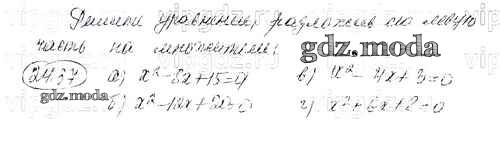 Решите уравнение, разложив его левую
часть на множители:
gdz.moda
2437 а) x²-8x+15=0 в) x²-4x+3=0
gdz.moda
б) x²-12x+20=0 г) x²+6x+8=0